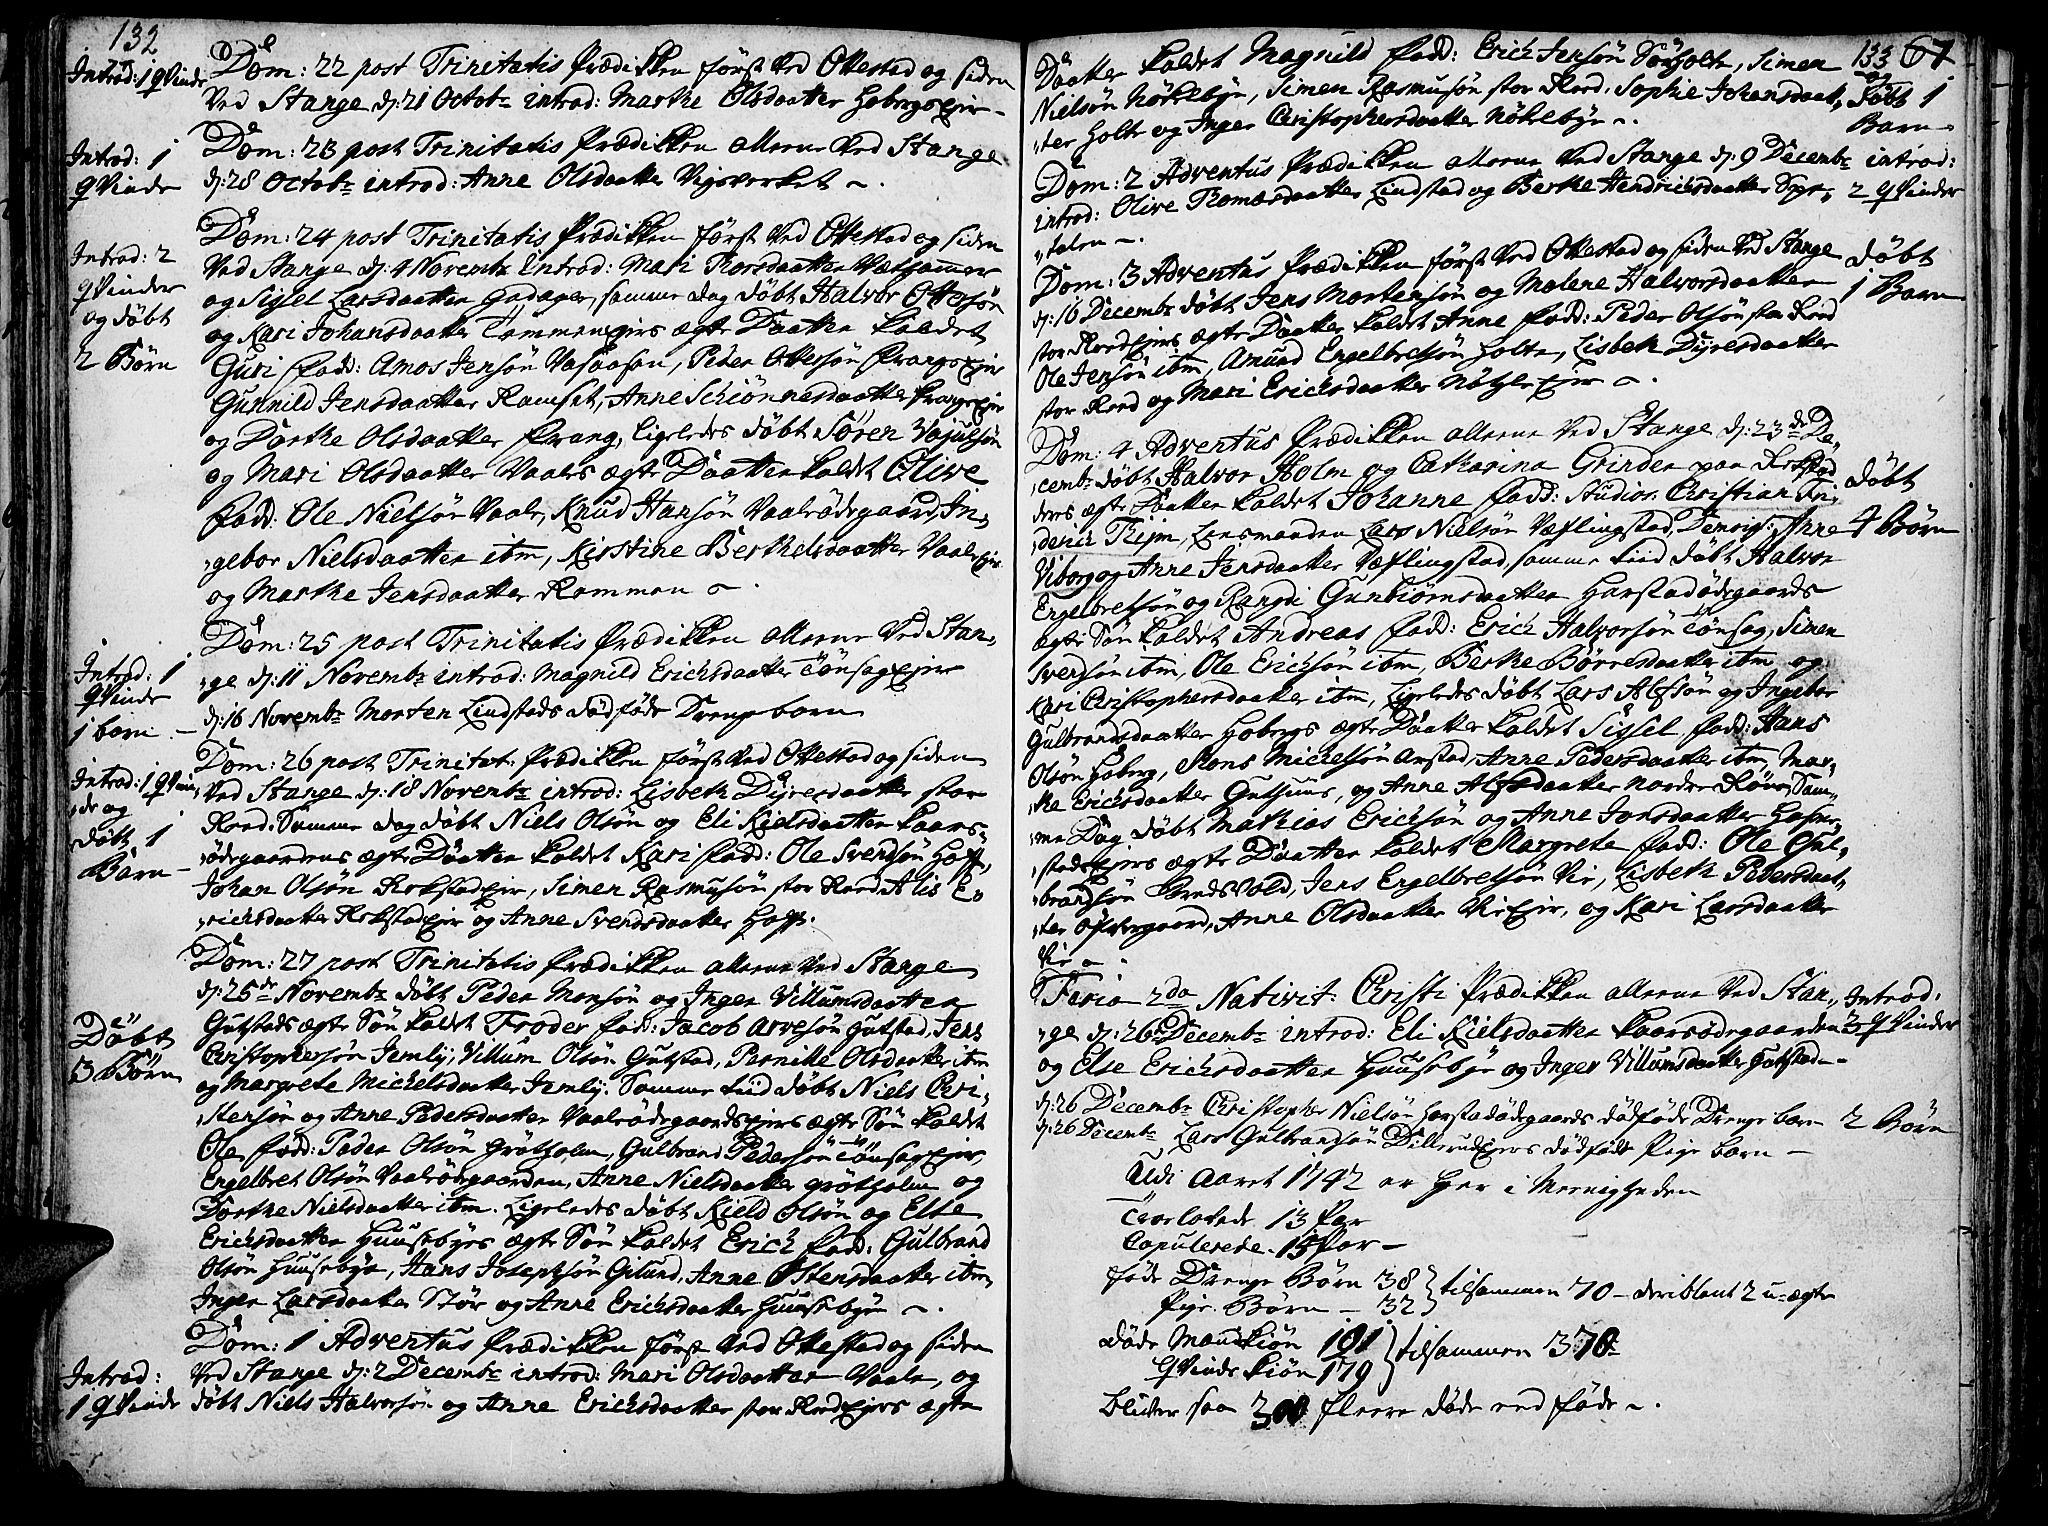 132
Introd: 1 qVinde
Dom: 22 post Trinitatis Prædikken först ved Ottestad og siden
Ved Stange d: 21 Octobr introd: Marthe Olsdaatter Hobergs Eier
Introd: 1
qVinde
Dom: 23 post Trinitatis Prædikken allene Ved Stange
d: 28 Octobr introd: Anne Olsdaatter Vigsverket
Introd: 2
qVinder
og döbt
2 Börn
Dom: 24 post Trinitatis Prædikken först Ved Ottestad og siden
Ved Stange d: 4 Novembr Introd: Mari Torsdaatter
og Sissel Larsdaatter Gadager, samme dag döbt Halvor Ottersön
og Kari Johansdaatter ægte Daatter kaldet
Guri fadd: Amos Jensön Vasaasen, Peder Ottersön Frangs Eier
Gunnild Jensdaatter Ramset, Anne Schönnesdaatter Frangs Eier
og Dorthe Olsdaatter Frang, Ligeledes döbt Sören
og Mari Olsdaatter Vaalers ægte Daatter kaldet Olive
fadd: Ole Nielsön Vaaler, Knud Hansön Vaalerödegaard, In-
gebor Nielsdaatter itm, Kirstine Berthelsdaatter Vaaler Eier
og Marthe Jensdaatter Rommen
Introd: 1
qVinde
1 barn
Dom: 25 post Trinitatis Prædikken allene Ved Stan-
ge d: 11 Novembr introd: Magnild Erichsdaatter Tönsag Eier
d: 16 Novembr Morten Lindstads dödföde Drenge barn
Introd: 1 qVin-
de og
döbt 1
Barn
Dom: 26 post Trinitat: Prædikken först Ved Ottestad og siden
Ved Stange d: 18 Novembr introd: Lisbeth Dyresdaatter stor
Rord. Samme dag döbt Niels Olsön og Eli Kielsdaatter Kaars-
ödegaardens ægte Daatter kaldet Kari fadd: Ole Svendsön Hoff,
Johan Olsön Rokstad Eier, Simen Rasmusön stor Rord, Alis E-
richsdaatter Rokstad Eier og Anne Svendsdaatter Hoff.
Döbt
3 Börn
Dom: 27 post Trinitatis Prædikken allene Ved Stange
d: 25de Novembr döbt Peder Monsön og Inger Villumsdaatter
Gutstads ægte Sön kaldet Froder fadd: Jacob Arvesön Gutstad, Jens
Christophersön Jemli, Villum Olsön Gutstad, Pernille Olsdaatter itm
og Margrete Michelsdaatter Jemli. Samme tiid döbt Niels Chri-
stensön og Anne Pedersdaatter Vaalerödegaards Eiers ægte Sön kaldet
Ole fadd: Peder Olsön Grötholm, Gulbrand Pedersön Tönsag Eier,
Engelbret Olsön Vaalerödegaarden, Anne Nielsdaatter Grötholm og
Dorthe Nielsdaatter itm. Ligeledes döbt Kield Olsön og Else
Erichsdaatter Huusebyes ægte Sön kaldet Erich fadd: Gulbrand
Olsön Huusebye, Hans Josephsön Gilund, Anne Ostensdaatter itm,
Inger Larsdaatter Stör og Anne Erichsdaatter Huusebye
Introd:
1 qVinde
Dom: 1 Adventus Prædikken först Ved Ottestad og siden
Ved Stange d: 2 Decembr introd: Mari Olsdaatter Vaaler, og
döbt Niels Halvorsön og Anne Erichsdaatter stor Rord Eiers ægte
133 67
Daatter kaldet Magnild fadd: Erich Jensön Sörholte, Simen
Nielsön Nökkelbye, Simen Rasmusön stor Rord, Sophie Johansdaat-
ter Holte og Inger Christophersdaatter Nökelbye
og
döbt 1
Barn
Dom: 2 Adventus Prædikken allene Ved Stange d: 9 Decembr
introd: Olive Romersdaatter Lindstad og Berthe Hendrichsdaatter Spe-
talen
introd:
2 qVinder
Dom: 3 Adventus Prædikken först Ved Ottestad og siden Ved Stange
d: 16 Decembr döbt Jens Mortensön og Malene Halvorsdaatter
stor Rord Eiers ægte Daatter kaldet Anne fadd: Peder Olsön stor Rord
Ole Jensön itm, Amund Engelbretsön Holte, Lisbeth Dyresdaatter
stor Rord og Mari Erichsdaatter Nötsle Eier
döbt
1 Barn
Dom: 4 Adventus Prædikken allene Ved Stange d: 23de De-
cembr döbt Halvor Holm og Catharina Grinder paa Rokstad
deres ægte Daatter kaldet Johanne fadd: Studios: Christian Fri-
derich Rejm, Lensmanden Lars Nielsön Væflingstad, Demoise: Anne
Viborg og Anne Jensdaatter Væflingstad, samme tiid döbt Halvor
Engelbretsön og Rangdi Gunbiörnsdaatter Harstadödegaards
ægte Sön kaldet Andreas fadd: Erich Halvorsön Tönsag, Simen
Svensön itm, Ole Erichsön itm, Berthe Börresdaatter itm og
Kari Christophersdaatter itm, Ligeledes döbt Lars Alfsön og Ingebor
Gulbrandsdaatter Hobergs ægte Daatter kaldet Sissel fadd: Hans
Olsön Hoberg, Mons Michelsön Anstad, Anne Pedersdaatter itm, Mar-
the Erichsdaatter Guthuus, og Anne Alfsdaatter Nordre Röne, Sam-
me Dag döbt Mathias Erichsön og Anne Jonsdaatter
stads Eiers ægte Daatter kaldet Margrete fadd: Ole Gul-
brandsön Jens Engelbretsön Vie, Lisbeth Pedersdaat-
ter Öfvergaard, Anne Olsdaatter Vie Eier, og Kari Larsdaatter
Vie
döbt
4 Börn
Feria 2da Nativit: Christi Prædikken allene Ved Stan-
ge d: 26de Decembr introd: Eli Kielsdaatter Kaarsödegaarden
og Else Erichsdaatter Huusebye og Inger Villumsdaatter Gutstad
Introd:
3 qVinder
d: 26 Decembr Christopher Nielsön Harstadödegaards dödföde Drenge barn
d: 26 Decembr Lars Gulbrandsön Dillerud Eiers dödfödt Pige barn
2 Börn
Udi Aaret 1742 er her i Menigheden
Trolovede 13 Par
Copulerede 15 Par
föde Drenge Börn 38 } tilsammen 70 deriblant 2 u-ægte
Pige Börn 32
Döde Mandkiön 191 } tilsammen 370
qVinde kiön 179
bliver saa 300 fleere döde end föde